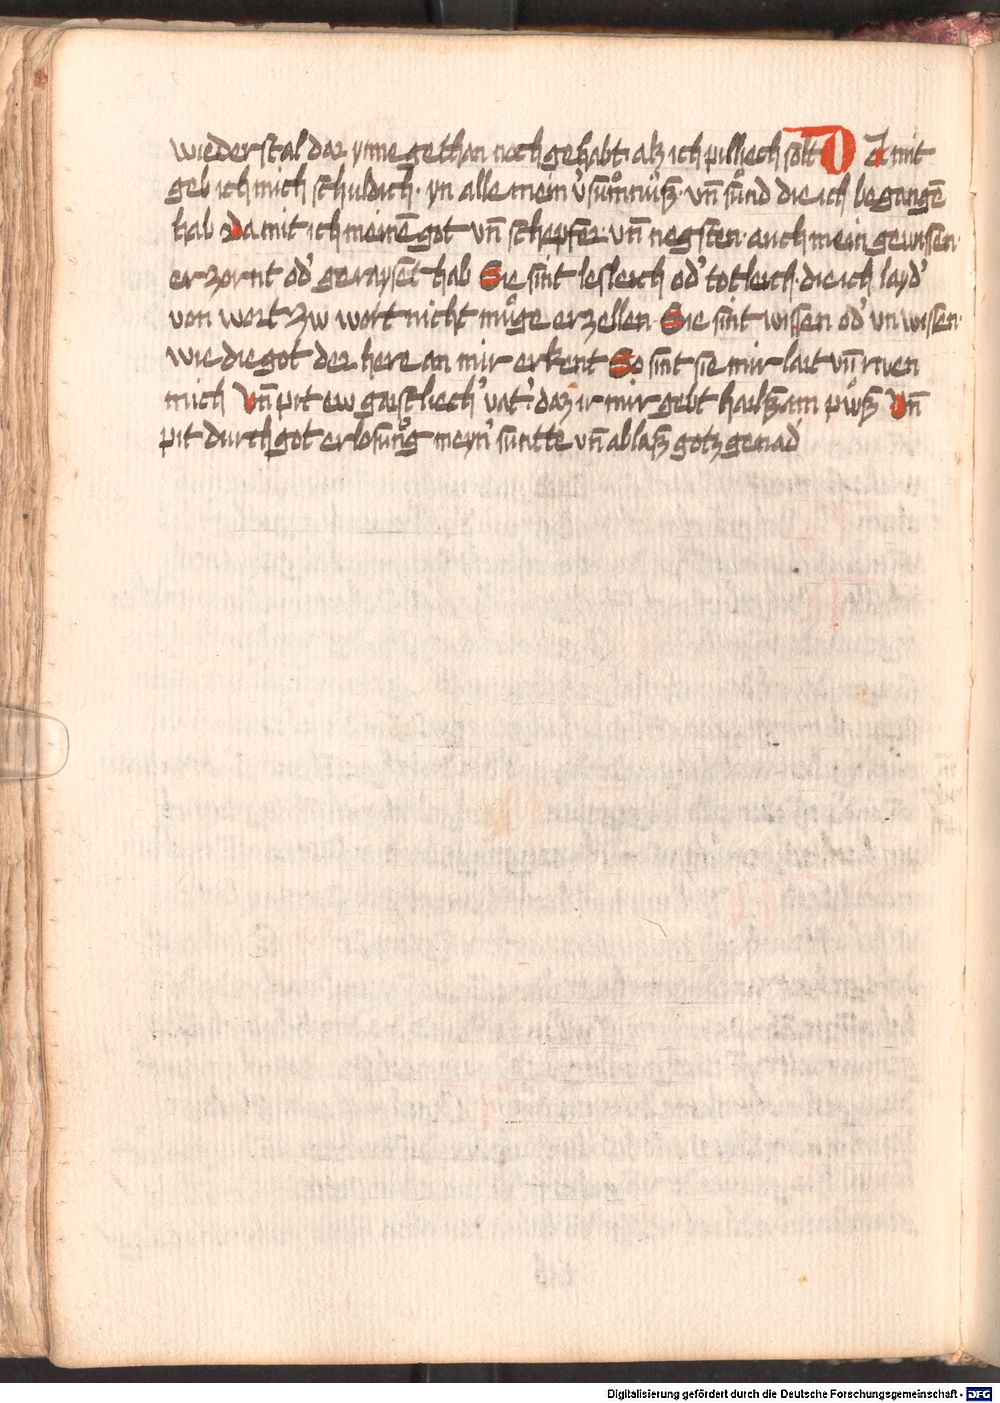 wiederstal dar ynne gethan noch gehabt · alz ich pilliech solt D A mit
geb ich mich schuldich · yn alle mein v̓sūmnüß · vn̄ sünd die ich begangē
hab Da mit ich meinē got vn̄ schepfer · vn̄ negsten · auch mein gewisen ·
erzornt od̓ geraysēt hab Sie sint lesleich od̓ totleich · die ich layd̓
von wort zw wort nicht müge erzellen · Sie sint wissen od̓ vnwissen ·
wie die got der here an mir erkent So sint sie mir lait vn̄ rwen
mich Vn̄ pit ew gaistliech̓ vat̓ daz ir mir gebt hailsam pwß Vn̄
pit durch got erlosung meyn̓ suntte vn̄ ablaß gotz genad
Digitalisierung gefördert durch die Deutsche Forschungsgemeinschaft - DFG